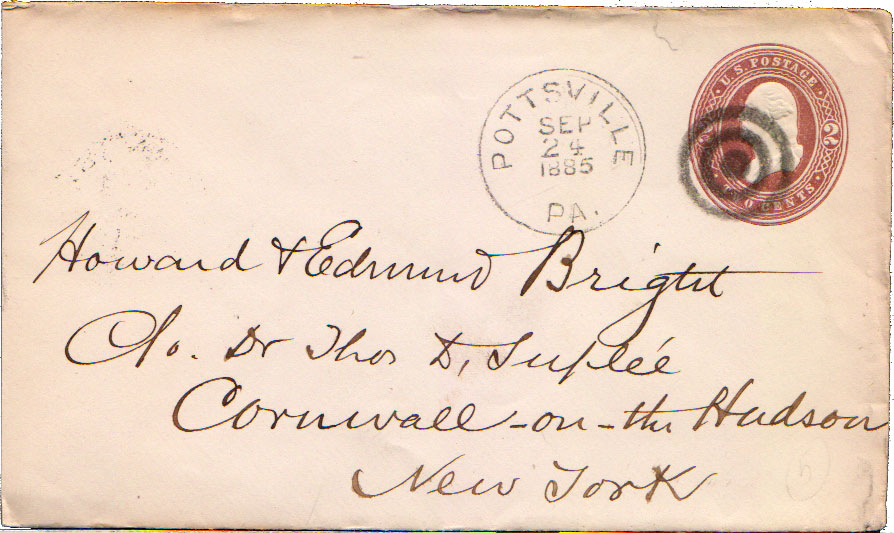 U.S. POSTAGE
2 2
TWO CENTS
POTTSVILLE
SEP
24
1885
PA.
Howard & Edmund Bright
C/o. Dr Thos D, Suplée
Cornwall-on-the Hudson
New York
5